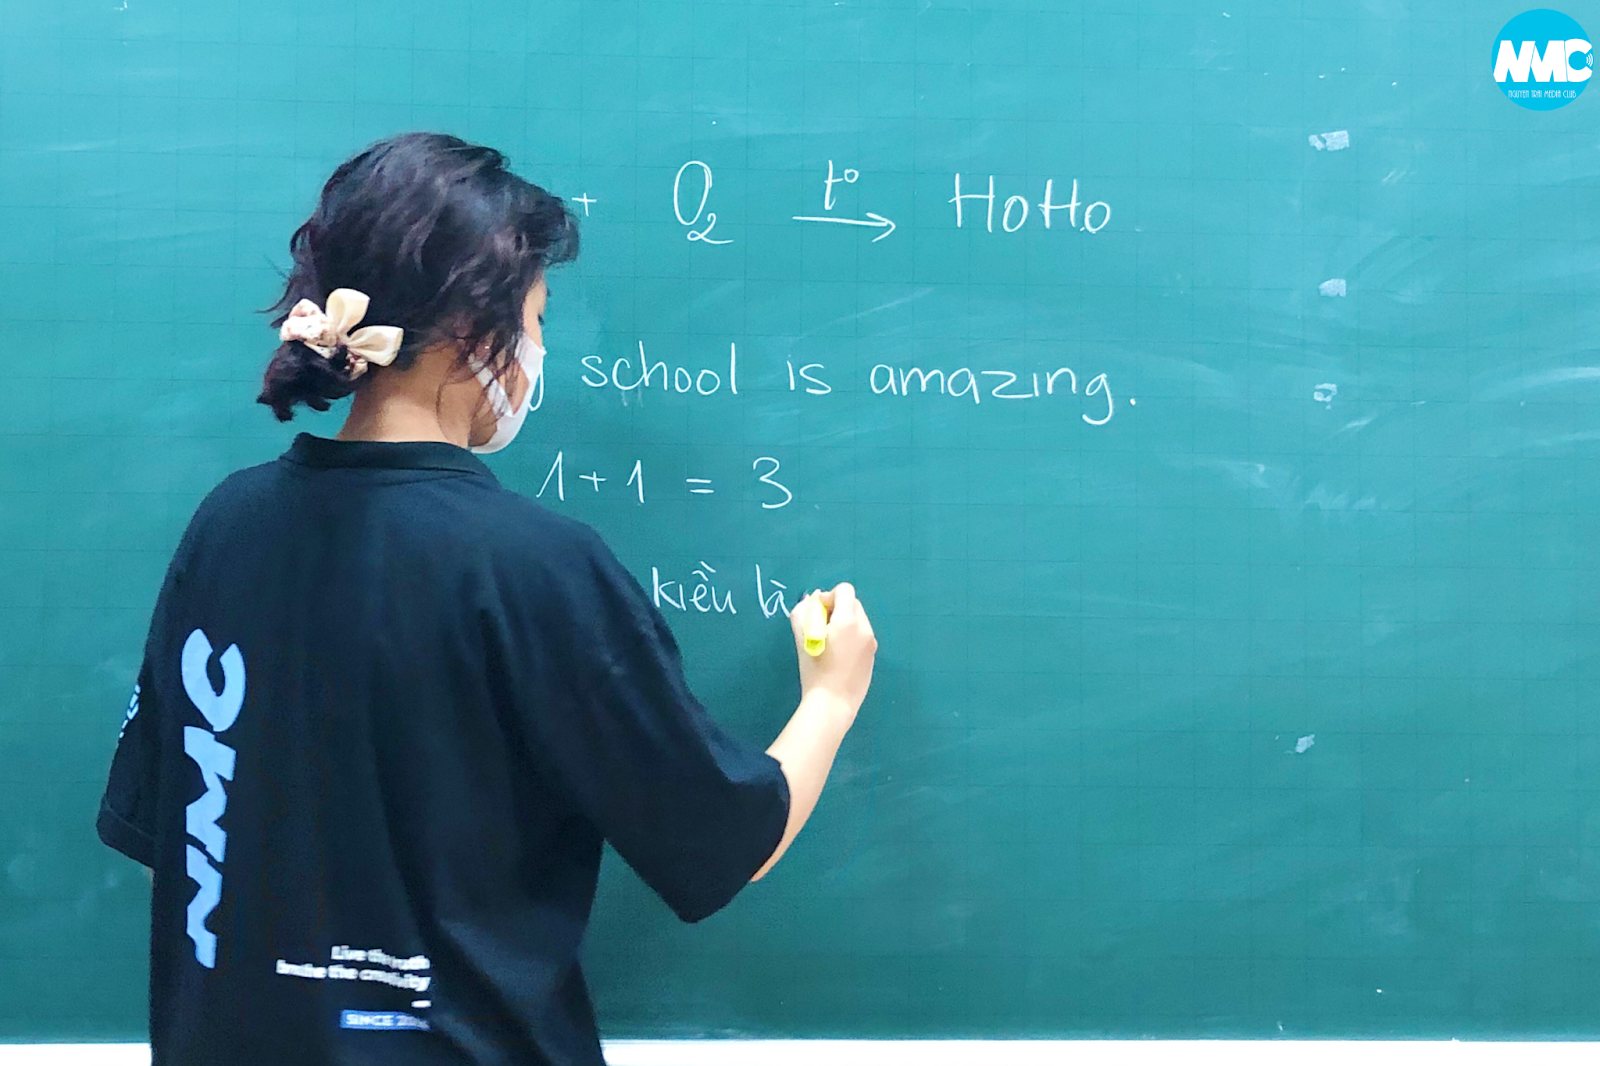 NMC
NGUYEN TRAI MEDIA CLUB
+ O₂ t° → HoHo
school is amazing.
1 + 1 = 3
kiều là
NMC
Live the
the creativity
SINCE